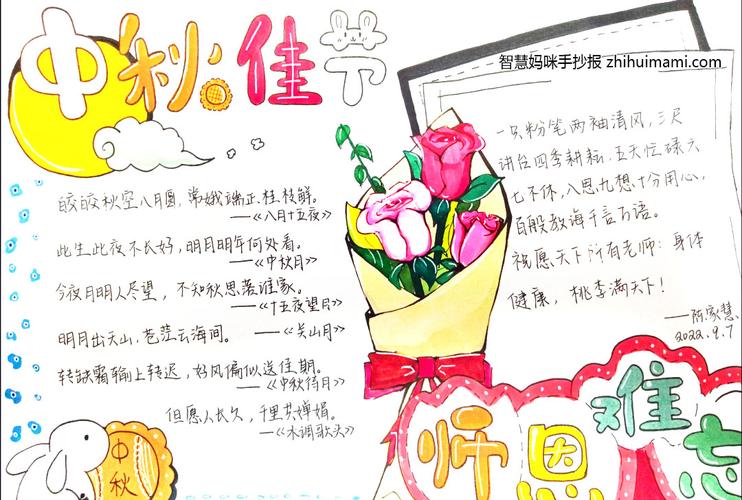 中秋佳节
智慧妈咪手抄报 zhihuimami.com
皎皎秋空八月圆,常娥端正桂枝鲜。
——《八月十五夜》
此生此夜不长好,明月明年何处看。
——《中秋月》
今夜月明人尽望,不知秋思落谁家。
——《十五夜望月》
明月出天山,苍茫云海间。
——《关山月》
转缺霜输上转迟,好风偏似送佳期。
——《中秋待月》
但愿人长久,千里共婵娟。
——《水调歌头》
中
秋
一只粉笔两袖清风,三尺
讲台四季耕耘,五天忙碌六
七不休,八思九想十分用心,
百般教诲千言万语。
祝愿天下所有老师:身体
健康,桃李满天下!
——阿家慧
2022.9.7
师恩难忘